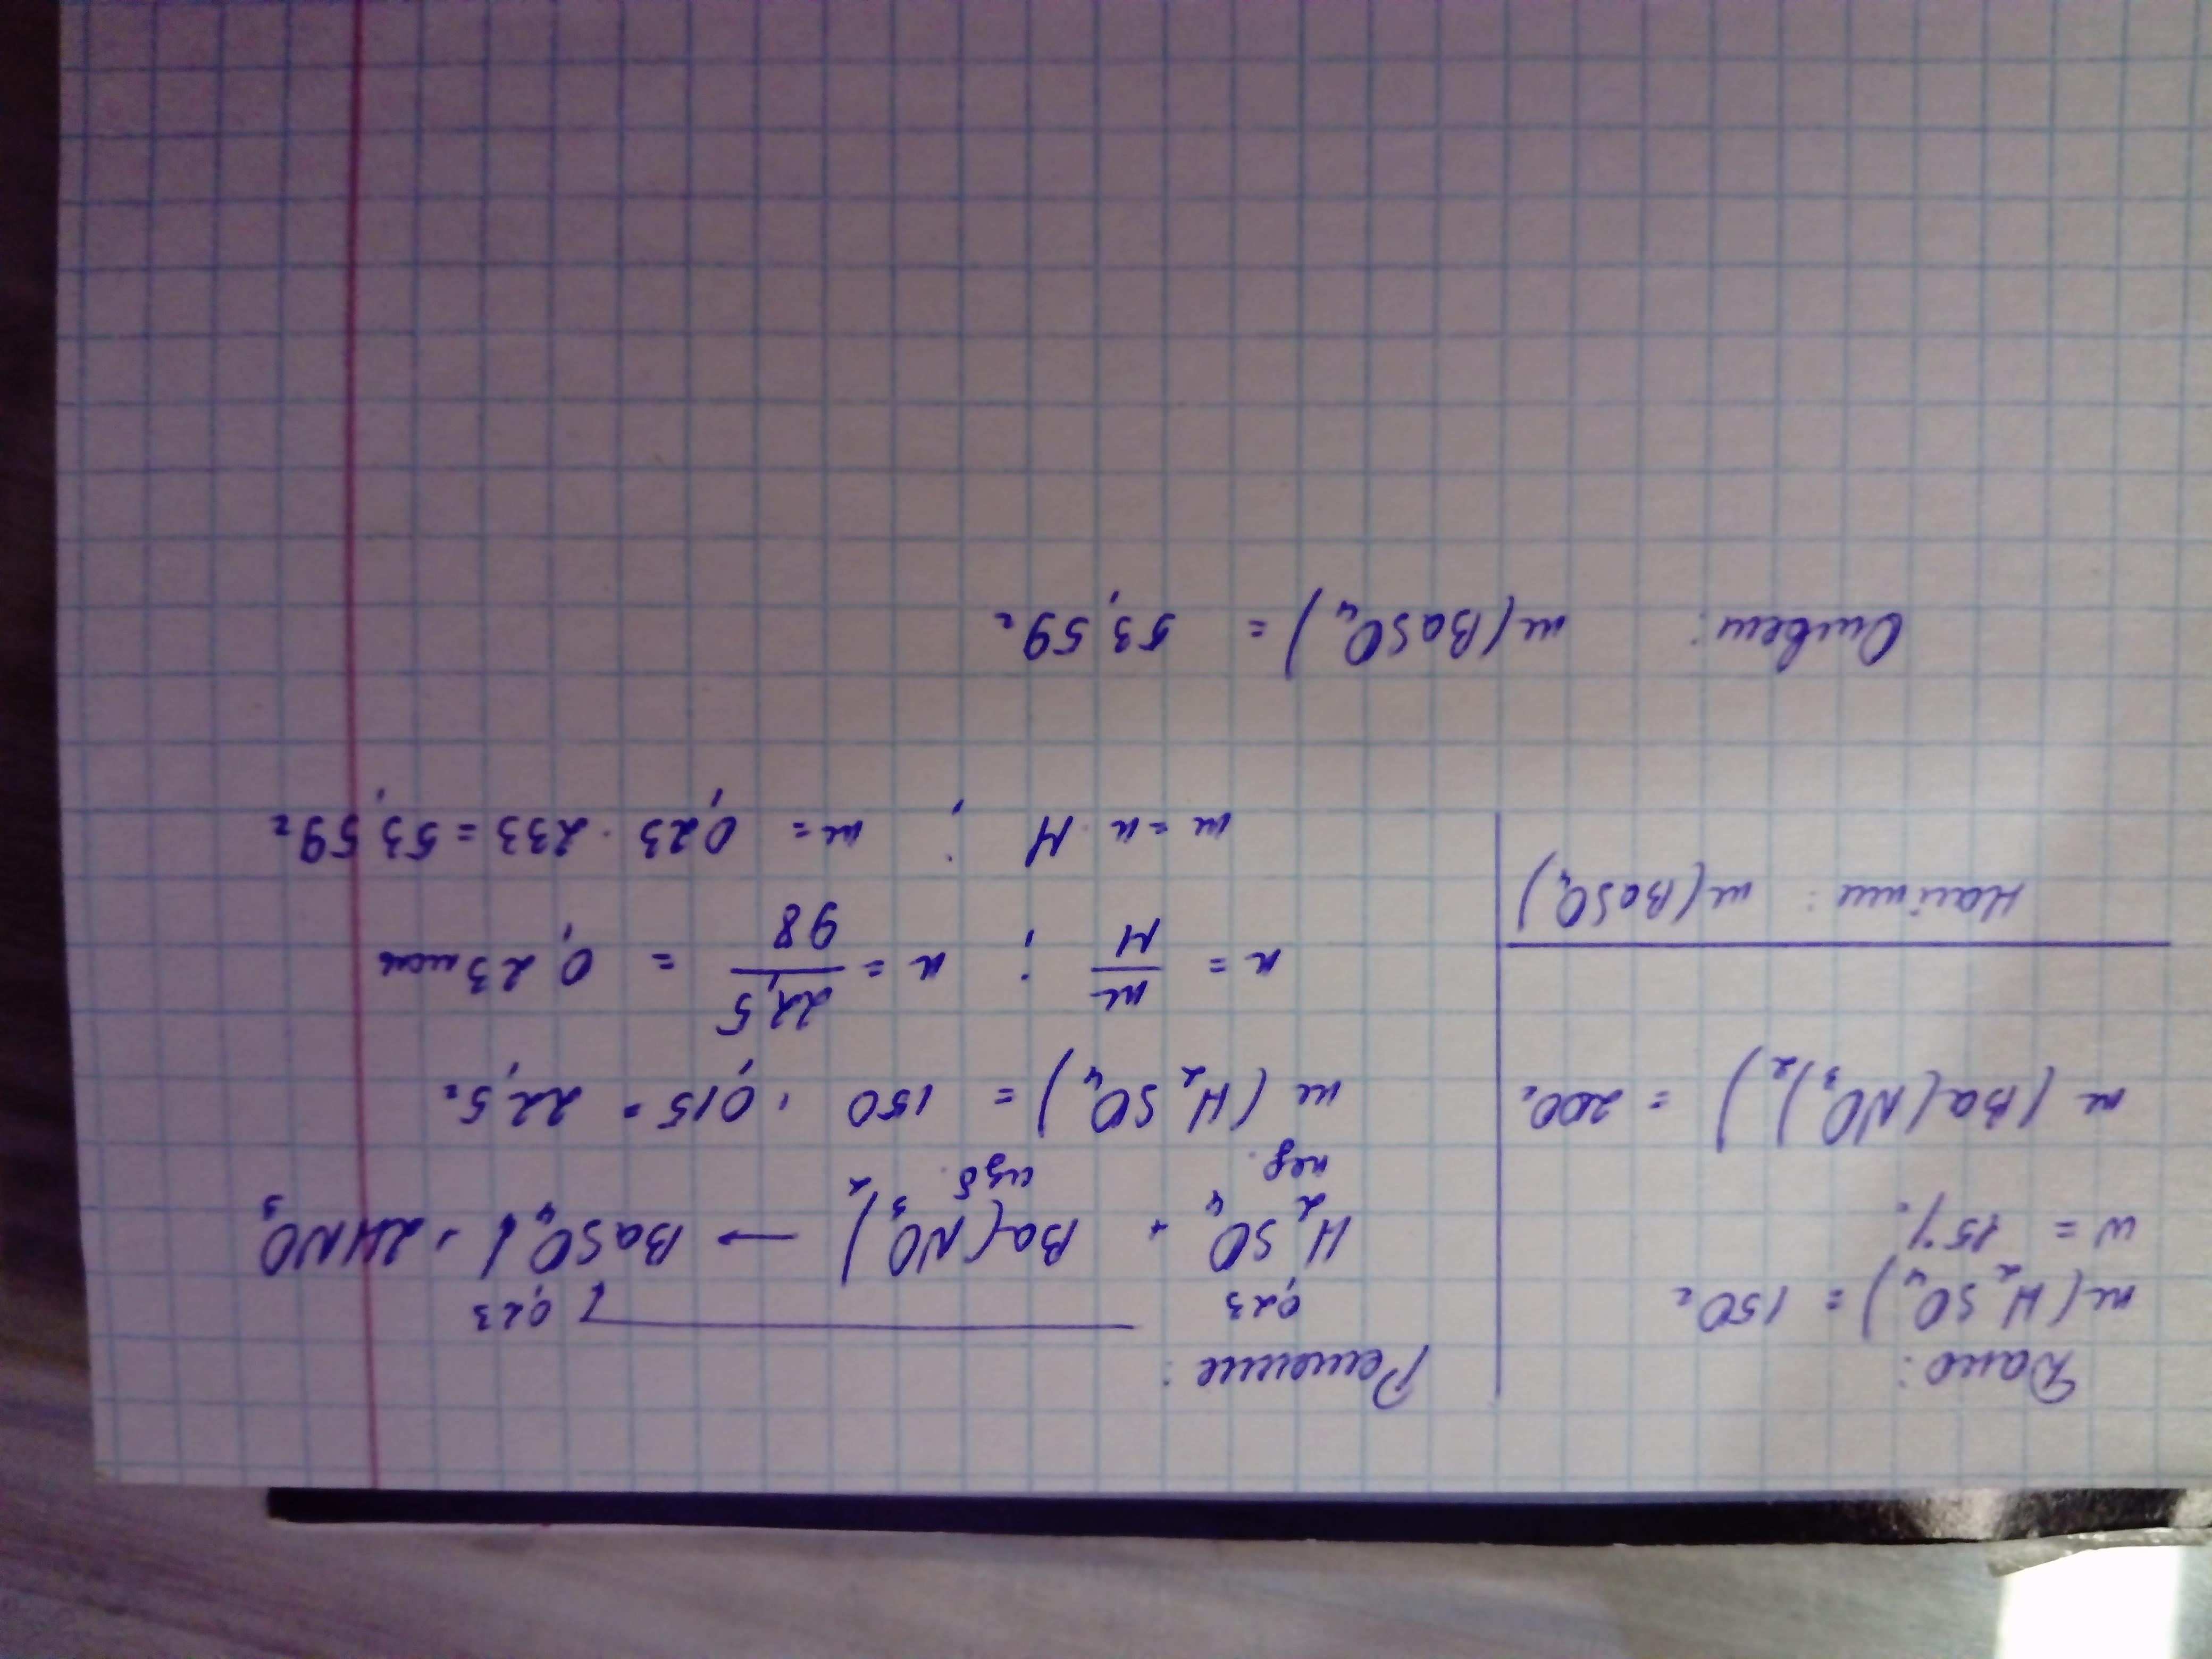 Дано:
m(H₂SO₄) = 150г
w = 15%
m(Ba(NO₃)₂) = 200г
Найти: m(BaSO₄)
Решение:
0,23 0,23
H₂SO₄ + Ba(NO₃)₂ → BaSO₄↓ + 2HNO₃
нед. изб.
m(H₂SO₄) = 150 · 0,15 = 22,5г
n = m/M ; n = 22,5/98 = 0,23моль
m = n · M ; m = 0,23 · 233 = 53,59г
Ответ: m(BaSO₄) = 53,59г